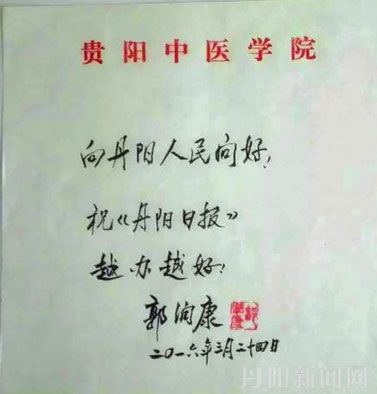 贵阳中医学院
向丹阳人民问好，
祝《丹阳日报》
越办越好！
郭润康
二〇一六年三月二十四日
丹阳新闻网